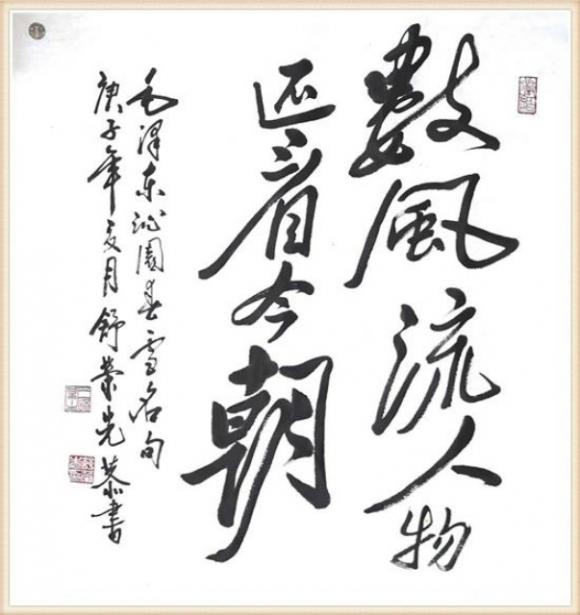 數風流人物
还看今朝
毛泽东沁園春雪名句
庚子年夏月舒荣先恭書